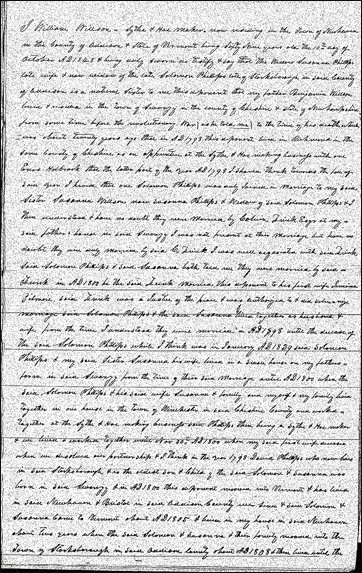 I William Willson a Sythe & Hoe maker, now residing in the Town of Newhaven
in the County of Addison & State of Vermont being Sixty Nine years old the 12th day of
October AD 1848 & being duly sworn do testify & say that Susanna Phillips
late wife & now widow of the late Solomon Phillips late of Starksborough in said County
of Addison is a natural Sister to me this deponent that my father Benjamin Willson
lived & resided in the town of Swanzy in the county of Cheshire & State of New hampshire
from some time before the revolutionary War (as he told me) to the time of his death which
was about twenty years ago that in AD 1793 this deponent lived in in the
same County of Cheshire as an apprentice at the Sythe & Hoe making business with one
Holbrook that the latter part of the year AD 1793 I should think towards the last of
said year I heard that one Solomon Phillips was duly joined in Marriage to my said
Sister Susanna Willson now Susanna Phillips & Widow of said Solomon Phillips & I
then understood & have no doubt they were Married by Calvin Frink Esqr at my
said father's house in said Swanzy I was not present at their Marriage but have no
doubt they were duly married by said C Frink I was well acquainted with said Frink
Said Solomon Phillips & said Susanna both told me they were married by said
Frink in AD 1800 the said Frink Married this deponent to his first wife
said Frink was a Justice of the peace & was authorized to
marriage said Solomon Phillips & the said Susanna lived together as husband &
wife from the time I understood they were married in AD 1793 until the decease of
the said Solomon Phillips which I think was in January AD 1829 said Solomon
Phillips & my said Sister Susanna his wife lived in a house on my fathers
farm in said Swanzy from the time of their said Marriage until AD 1800 when the
said Solomon Phillips & his said wife Susanna & family and myself & my family lived
together in one house in the town of Winchester in said Cheshire County and worked
together at the Sythe & Hoe making business said Phillips then being a Sythe & Hoe maker
& we lived & worked together until Nov 30th AD 1800 when my said first wife
when we dissolved our partnership & I think in the year 1798 David Phillips who now lives
in said Starksborough & is the oldest son & Child of the said Solomon & Susanna was
born in said Swanzy & in AD 1800 this deponent moved into Vermont & has lived
in said Newhaven & Bristol in said Addison County ever since & said Solomon &
Susanna came to Vermont about AD 1805 & lived in my house in said Newhaven
about two years when the said Solomon & Susanna & their family moved into the
Town of Starksborough in said Addison County about AD 1808 & then lived until the